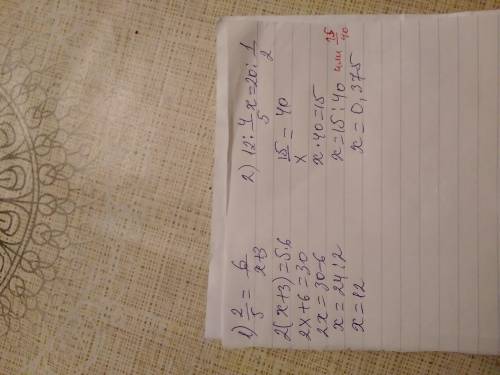 1) 2/5 = 6/x+3
2(x+3)=5·6
2x+6=30
2x=30-6
x=24:2
x=12
2) 12:4/5x=20:1/2
15/x=40
x·40=15
x=15:40 или 15/40
x=0,375